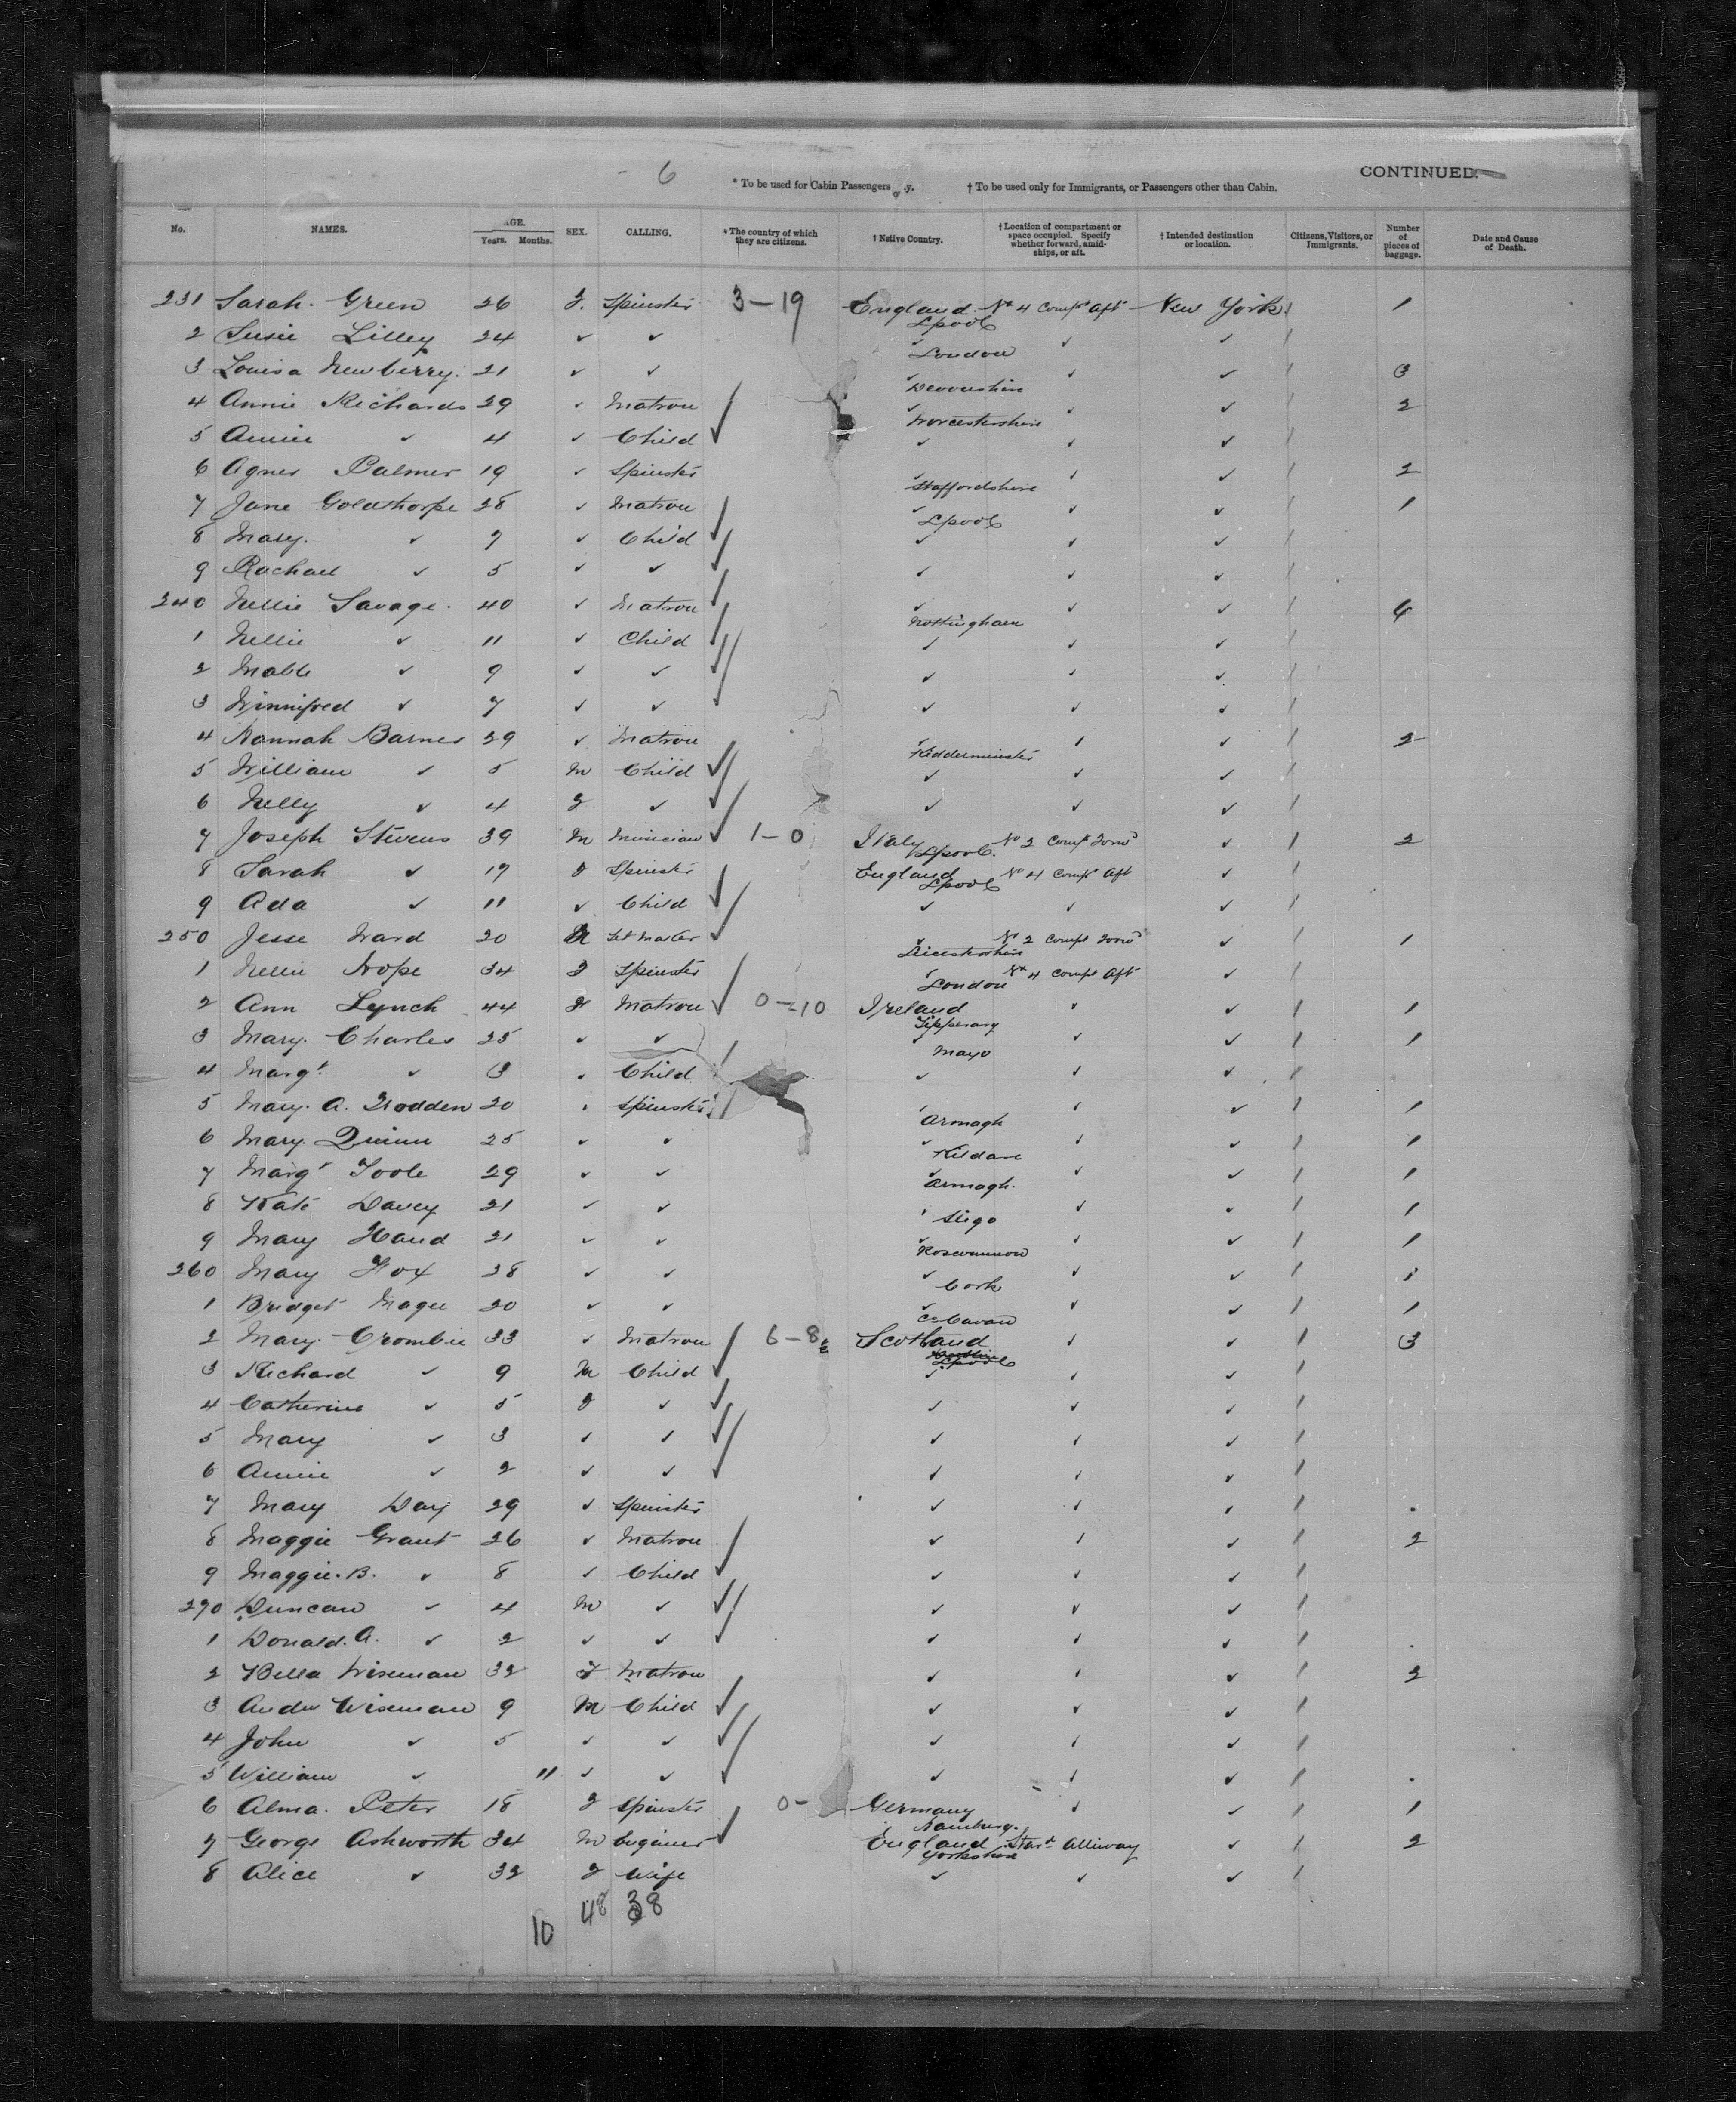 - 6
* To be used for Cabin Passengers y. † To be used only for Immigrants, or Passengers other than Cabin. CONTINUED.
No. NAMES. AGE. Years. Months. SEX. CALLING. * The country of which they are citizens. † Native Country. † Location of compartment or space occupied. Specify whether forward, amid-ships, or aft. † Intended destination or location. Citizens, Visitors, or Immigrants. Number of pieces of baggage. Date and Cause of Death.
231 Sarah Green 26 F. Spinster 3-19 England Lpool No 4 Compt Aft New York / 1
2 Susie Lilley 24 ✓ ✓ ✓ London ✓ ✓ /
3 Louisa Newberry 21 ✓ ✓ ✓ Devonshire ✓ ✓ / 3
4 Annie Richards 29 ✓ Matron ✓ Worcestershire ✓ ✓ / 2
5 Annie ✓ 4 ✓ Child ✓ ✓ ✓ /
6 Agnes Palmer 19 ✓ Spinster ✓ Staffordshire ✓ ✓ / 2
7 Jane Goldthorpe 28 ✓ Matron ✓ Lpool ✓ ✓ / 1
8 Mary ✓ 7 ✓ Child ✓ ✓ ✓ /
9 Rachael ✓ 5 ✓ ✓ ✓ ✓ ✓ /
240 Nellie Savage 40 ✓ Matron ✓ Nottingham ✓ ✓ / 4
1 Nellie ✓ 11 ✓ Child ✓ ✓ ✓ /
2 Mable ✓ 9 ✓ ✓ ✓ ✓ ✓ /
3 Winnifred ✓ 7 ✓ ✓ ✓ ✓ ✓ /
4 Hannah Barnes 29 ✓ Matron ✓ Kidderminster ✓ ✓ / 2
5 William ✓ 5 M Child ✓ ✓ ✓ /
6 Nelly ✓ 4 F ✓ ✓ ✓ ✓ /
7 Joseph Stevens 39 M Musician 1-0 Italy Lpool No 2 Compt Forwd ✓ / 2
8 Sarah ✓ 17 F Spinster England Lpool No 4 Compt Aft ✓ /
9 Ada ✓ 11 ✓ Child ✓ ✓ ✓ /
250 Jesse Ward 20 M ✓ Leicestershire No 2 Compt Forwd ✓ / 1
1 Nellie Hope 34 F Spinster ✓ London No 4 Compt Aft ✓ /
2 Ann Lynch 44 F Matron 0-10 Ireland Tipperary ✓ ✓ / 1
3 Mary Charles 25 ✓ ✓ ✓ Mayo ✓ ✓ / 1
4 Margt ✓ 3 ✓ Child ✓ ✓ ✓ /
5 Mary A. 20 ✓ Spinster ✓ Armagh ✓ ✓ / 1
6 Mary Quinn 25 ✓ ✓ ✓ Kildare ✓ ✓ / 1
7 Margt Toole 29 ✓ ✓ ✓ Armagh ✓ ✓ / 1
8 Kate Davey 21 ✓ ✓ ✓ Sligo ✓ ✓ / 1
9 Mary Hand 21 ✓ ✓ ✓ Roscommon ✓ ✓ / 1
260 Mary Fox 28 ✓ ✓ ✓ Cork ✓ ✓ / 1
1 Bridget Magee 20 ✓ ✓ ✓ Co Cavan ✓ ✓ / 1
2 Mary Crombie 33 ✓ Matron 6-8 Scotland Lpool ✓ ✓ / 3
3 Richard ✓ 9 M Child ✓ ✓ ✓ /
4 Catherine ✓ 5 F ✓ ✓ ✓ ✓ /
5 Mary ✓ 3 ✓ ✓ ✓ ✓ ✓ /
6 Annie ✓ 2 ✓ ✓ ✓ ✓ ✓ /
7 Mary Day 29 ✓ Spinster ✓ ✓ ✓ /
8 Maggie Grant 26 ✓ Matron ✓ ✓ ✓ / 2
9 Maggie. B. ✓ 8 ✓ Child ✓ ✓ ✓ /
270 Duncan ✓ 4 M ✓ ✓ ✓ ✓ /
1 Donald. A. ✓ 2 ✓ ✓ ✓ ✓ ✓ /
2 Bella Wiseman 32 F Matron ✓ ✓ ✓ / 2
3 Andw Wiseman 9 M Child ✓ ✓ ✓ /
4 John ✓ 5 ✓ ✓ ✓ ✓ ✓ /
5 William ✓ 11 ✓ ✓ ✓ ✓ ✓ /
6 Alma Peter 18 F Spinster 0- Germany Hamburg ✓ ✓ / 1
7 George Ashworth 34 M Engineer England Yorkshire Start Alliway ✓ / 2
8 Alice ✓ 32 F Wife ✓ ✓ ✓ /
10 48 38